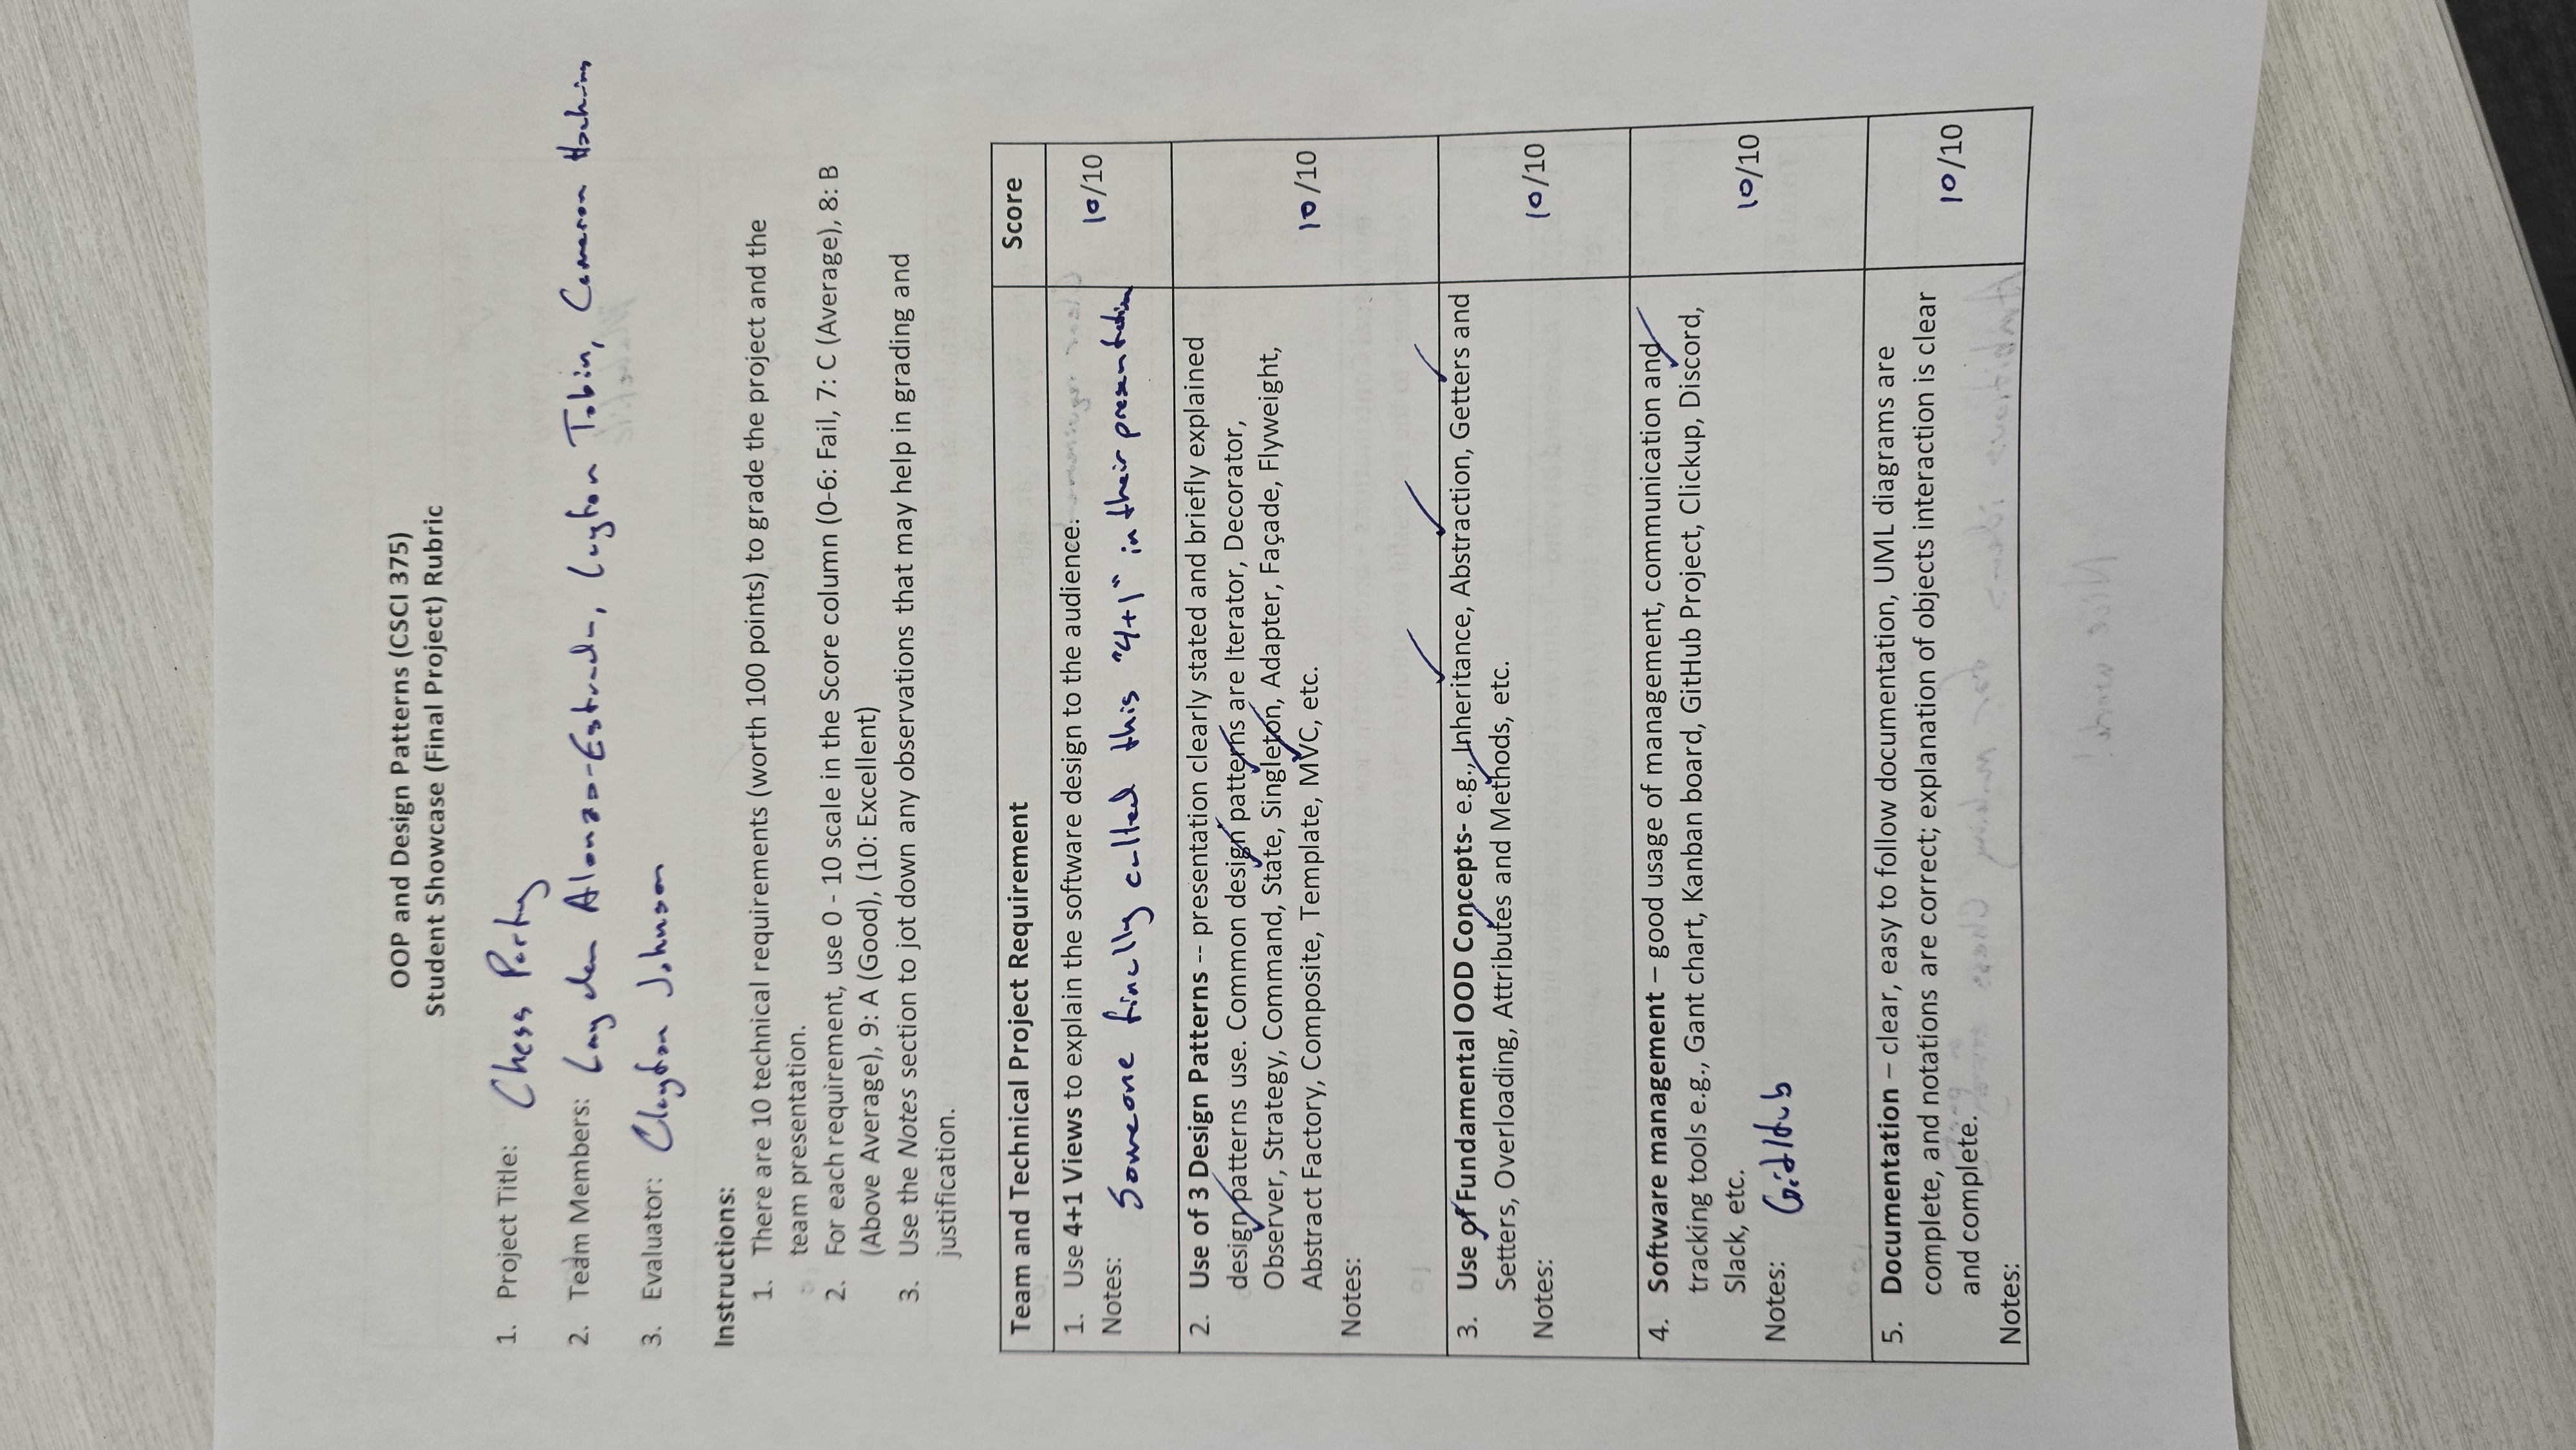 OOP and Design Patterns (CSCI 375)
Student Showcase (Final Project) Rubric
1. Project Title: Chess Party
2. Team Members: Layden Alonzo-Estrada, Layton Tobin, Cameron
3. Evaluator: Clayton Johnson
Instructions:
1. There are 10 technical requirements (worth 100 points) to grade the project and the
team presentation.
2. For each requirement, use 0 - 10 scale in the Score column (0-6: Fail, 7: C (Average), 8: B
(Above Average), 9: A (Good), (10: Excellent)
3. Use the Notes section to jot down any observations that may help in grading and
justification.
Team and Technical Project Requirement Score
1. Use 4+1 Views to explain the software design to the audience.
10/10
Notes: Someone finally called this "4+1" in their presentation
2. Use of 3 Design Patterns -- presentation clearly stated and briefly explained
design patterns use. Common design patterns are Iterator, Decorator,
Observer, Strategy, Command, State, Singleton, Adapter, Façade, Flyweight,
Abstract Factory, Composite, Template, MVC, etc.
10/10
Notes:
3. Use of Fundamental OOD Concepts- e.g., Inheritance, Abstraction, Getters and
Setters, Overloading, Attributes and Methods, etc.
10/10
Notes:
4. Software management – good usage of management, communication and
tracking tools e.g., Gant chart, Kanban board, GitHub Project, Clickup, Discord,
Slack, etc.
10/10
Notes: GitHub
5. Documentation – clear, easy to follow documentation, UML diagrams are
complete, and notations are correct; explanation of objects interaction is clear
and complete.
10/10
Notes: